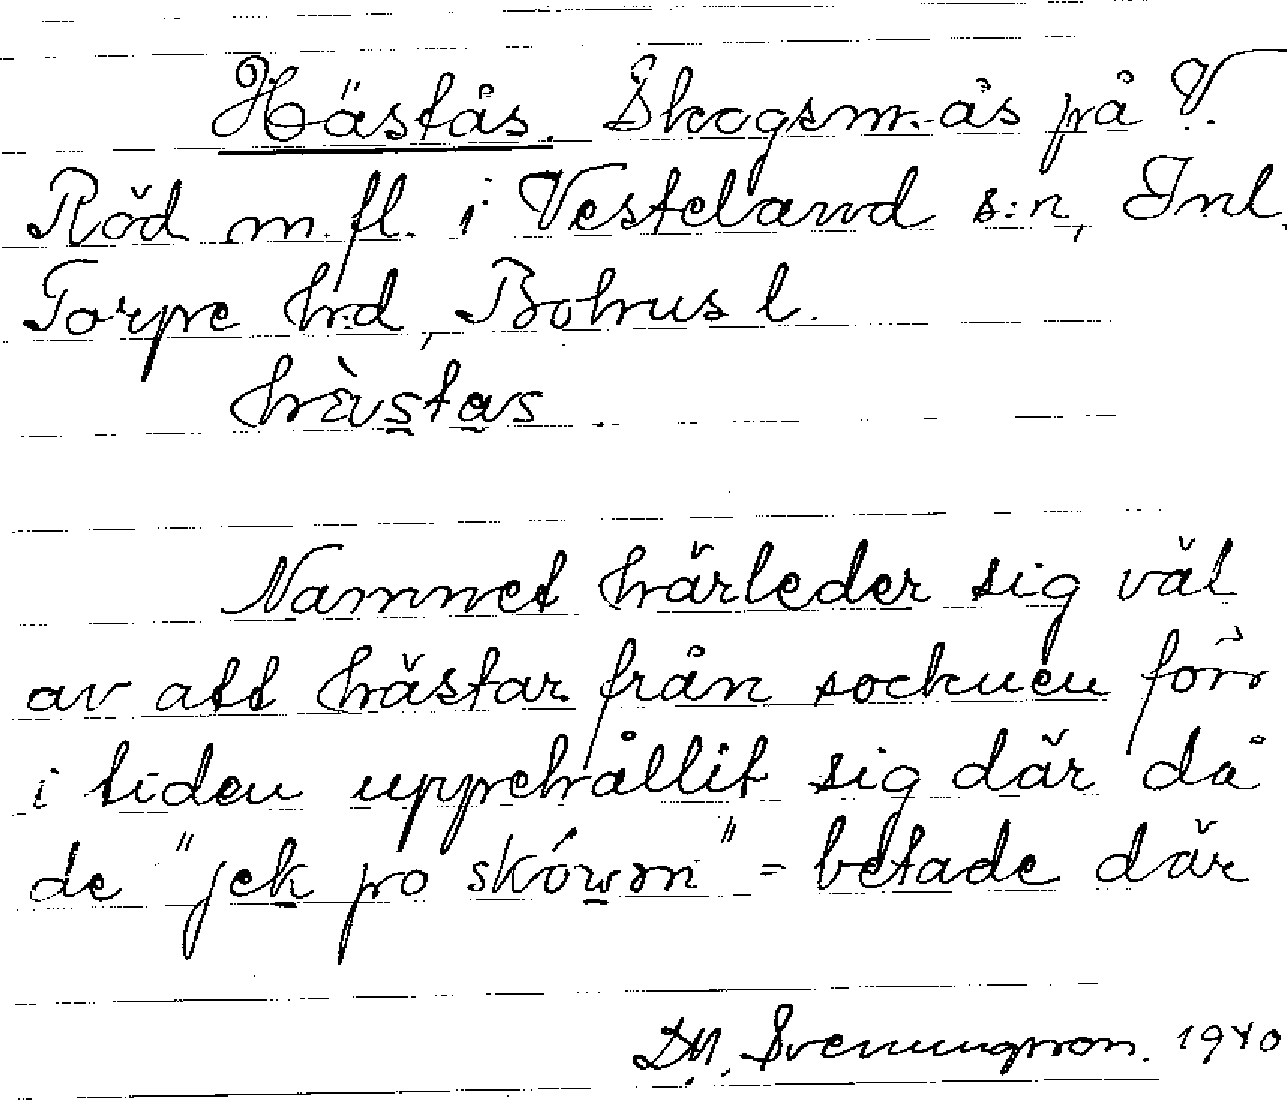 Hästås. Skogsm.ås på V.
Röd m.fl. i Vesteland s:n, Inl.
Torpe hrd, Bohus l.
hrèustas.
Namnet härleder sig väl
av att hästar från socknen förr
i tiden uppehållit sig där då
de "jek po skówən" = betade där
D.M. Svenungsson. 1940